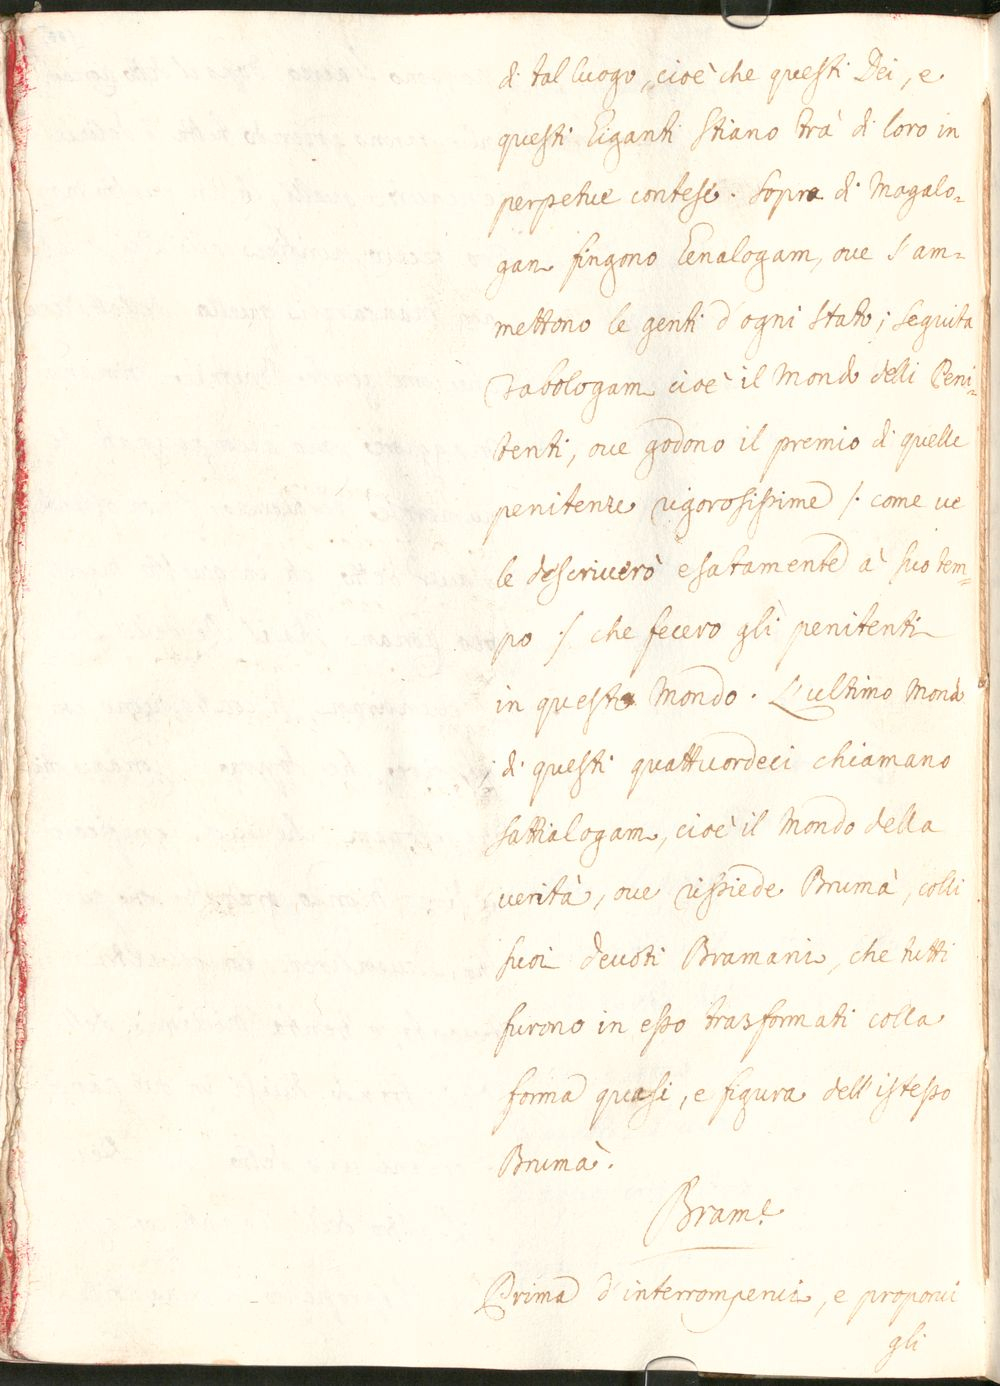 di tal luogo, cioè che questi Dei, e
questi Giganti stiano trà di loro in
perpetue contese. Sopra di Magalo=
gan fingono Genalogam, ove s'am=
mettono le genti d'ogni stato; seguita
Tabologam cioè il Mondo delli Peni=
tenti, ove godono il premio di quelle
penitenze rigorosissime /. come ve
le descriverò esatamente à suo tem=
po ./ che fecero gli penitenti
in questo Mondo. L'ultimo Mondo
di questi quattuordeci chiamano
Sattialogam, cioè il Mondo della
verità, ove rissiede Brumà, colli
suoi devoti Bramani, che tutti
furono in esso trasformati colla
forma quasi, e figura dell'istesso
Brumà.
Bram:e
Prima d'interrompervi, e proporvi
gli